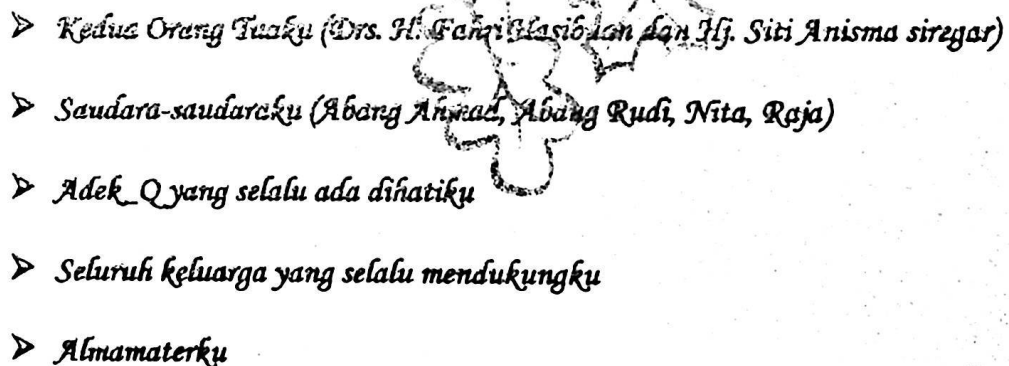 ➢ Kedua Orang Tuaku (Drs. H. Fahri Hasibuan dan Hj. Siti Anisma siregar)
➢ Saudara-saudaraku (Abang Ahmad, Abang Rudi, Nita, Raja)
➢ Adek_Q yang selalu ada dihatiku
➢ Seluruh keluarga yang selalu mendukungku
➢ Almamaterku